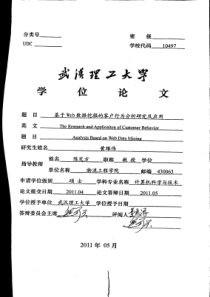 分类号 密 级
UDC 学校代码 10497
武汉理工大学
学 位 论 文
题 目 基于Web数据挖掘的客户行为分析研究及应用
英 文 The Research and Application of Customer Behavior
题 目 Analysis Based on Web Data Mining
研究生姓名
姓名 职称 教授 学位
指导教师
单位名称 物流工程学院 邮编 430063
申请学位级别 硕士 学科专业名称 计算机科学与技术
论文提交日期 2011.04 论文答辩日期 2011.05
学位授予单位 武汉理工大学 学位授予日期
答辩委员会主席 评阅人
2011 年 05 月